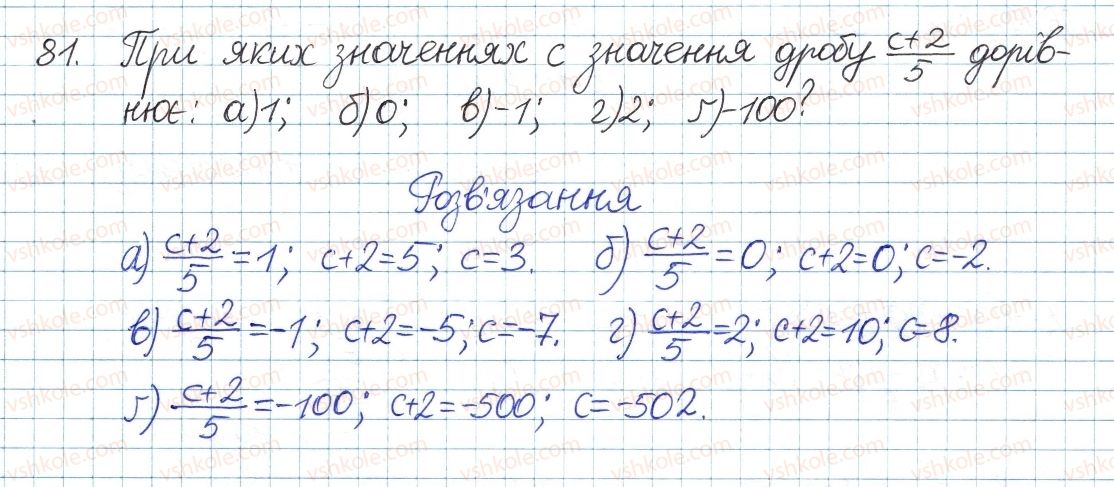 81. При яких значеннях c значення дробу \frac{c+2}{5} дорів-
нює: а)1; б)0; в)-1; г)2; ґ)-100?
Розв'язання
а) \frac{c+2}{5}=1; c+2=5; c=3. б) \frac{c+2}{5}=0; c+2=0; c=-2.
в) \frac{c+2}{5}=-1; c+2=-5; c=-7. г) \frac{c+2}{5}=2; c+2=10; c=8.
ґ) \frac{c+2}{5}=-100; c+2=-500; c=-502.